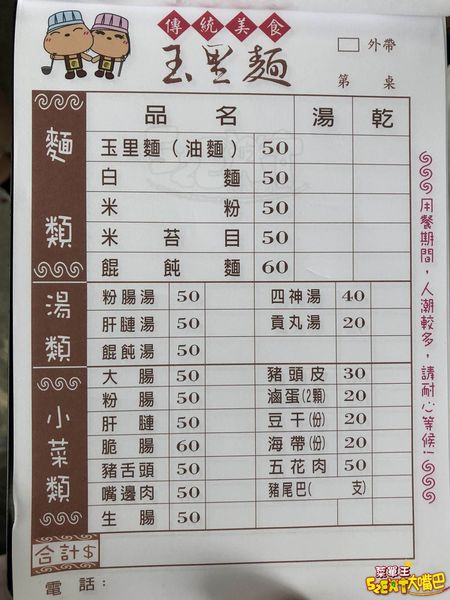 傳統美食
玉里麵
外帶
第 桌
品名 湯 乾
麵類
玉里麵(油麵) 50
白麵 50
米粉 50
米苔目 50
餛飩麵 60
湯類
粉腸湯 50 四神湯 40
肝腱湯 50 貢丸湯 20
餛飩湯 50
小菜類
大腸 50 豬頭皮 30
粉腸 50 滷蛋(2顆) 20
肝腱 50 豆干(份) 20
脆腸 60 海帶(份) 20
豬舌頭 50 五花肉 50
嘴邊肉 50 豬尾巴( 支)
生腸 50
合計$
電話:
用餐期間,人潮較多,請耐心等候!
菜單王
52EAT大嘴巴